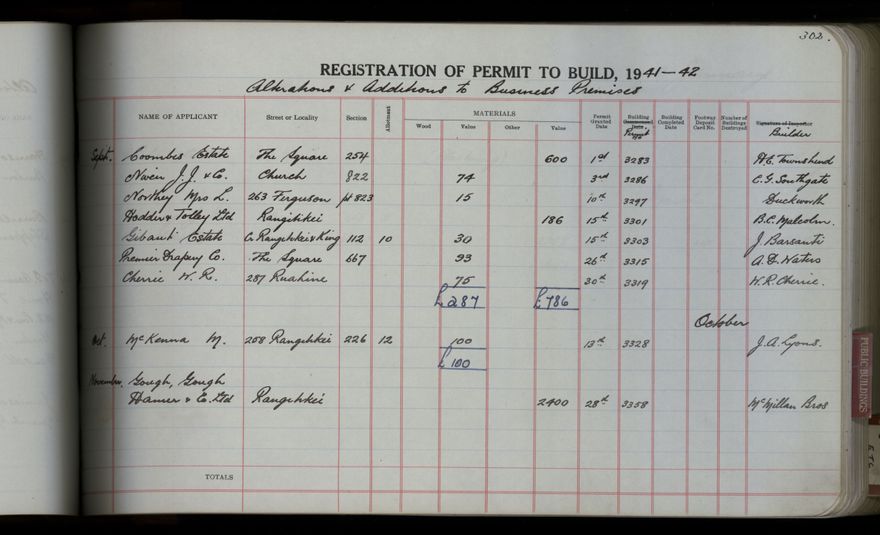 302.
REGISTRATION OF PERMIT TO BUILD, 1941-42
Alterations & Additions to Business Premises
NAME OF APPLICANT Street or Locality Section Allotment MATERIALS Wood Value Other Value Permit Granted Date Building Commenced Date Permit No Building Completed Date Footway Deposit Card No. Number of Buildings Destroyed Signature of Inspector Builder
Sept. Coombes Estate The Square 254 600 1st 3283 H.E. Townshend
J.J. & Co. Church 822 74 3rd 3286 C.G. Southgate
Northey Mrs L. 263 Ferguson pt 823 15 10th 3297 Duckworth
Hodder & Tolley Ltd Rangitikei 186 15th 3301 B.C. Malcolm.
Estate Cr Rangitikei & King 112 10 30 15th 3303 J. Barsanti
Premier Drapery Co. The Square 667 93 26th 3315 A.D. Waters
Cherrie W. R. 287 Ruahine 75 30th 3319 W.R. Cherrie.
£287 £786
October
Oct. McKenna M. 208 Rangitikei 226 12 100 13th 3328 J.A. Lyons.
£100
November. Gough, Gough
Hamer & Co. Ltd Rangitikei 2400 28th 3358 McMillan Bros
TOTALS
PUBLIC BUILDINGS